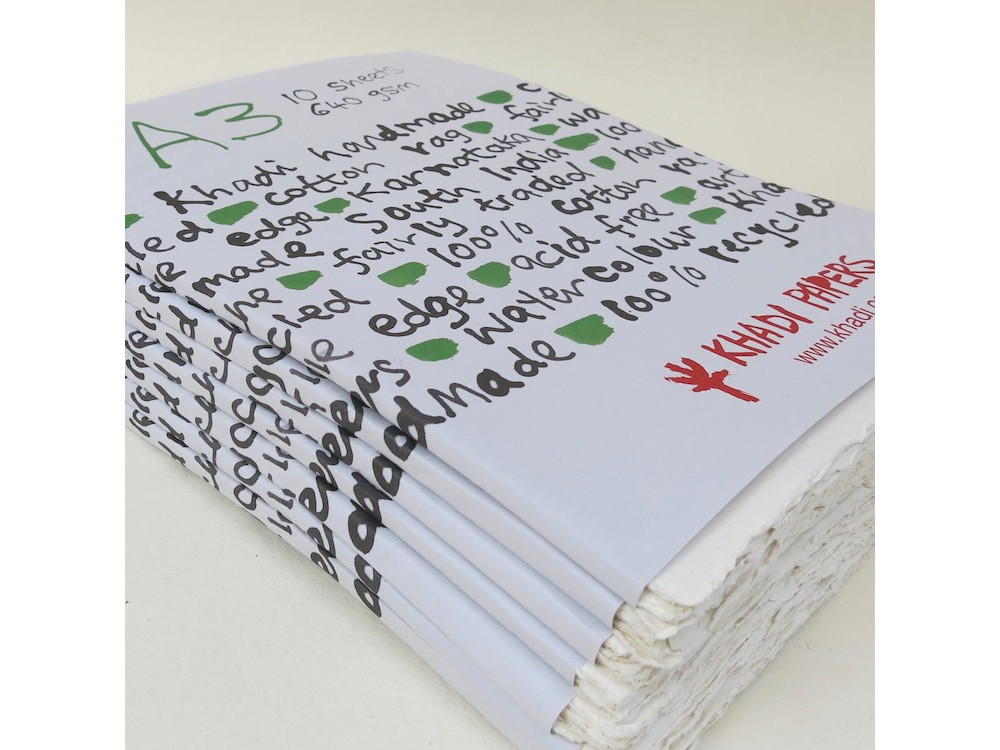 A3
10 sheets
640 gsm
Khadi handmade
cotton rag fairl
edge Karnataka wa
made South India 100
fairly traded hand
100% cotton ra
edge acid free art
watercolour Kha
made 100% recycled
KHADI PAPERS
www.khadi.c